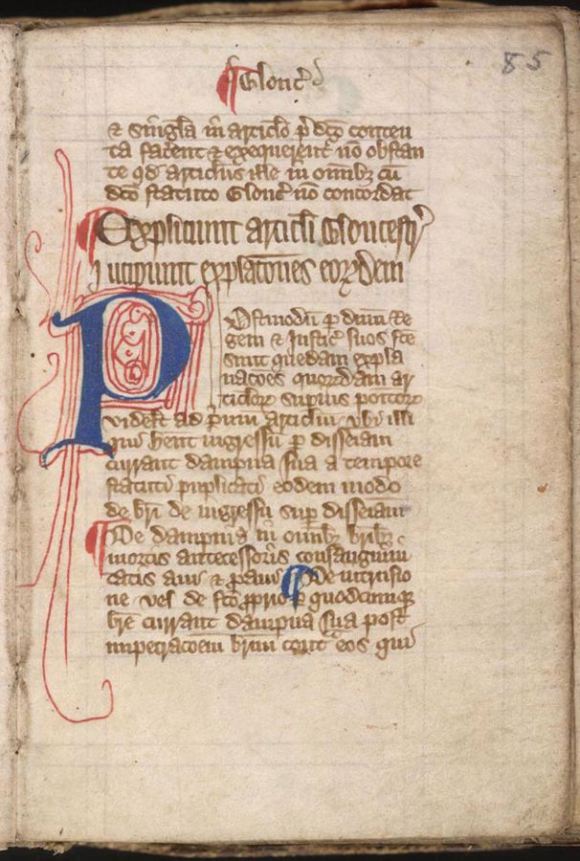 85
Glouc̃
⁊ singl̃a in articl̃o p̃dc̃o conten
ta facent ⁊ exequerent᷑ nō obstan
te qd̛ articlus ille in om̃ibȝ cū
dc̃o statuto Glouc̃ nō concordat
Expliciunt articl̃i Gloucestr̃
Incipiunt expl̃atōnes eorꝝdem
Postmodū ꝑ dn̄m Re
gem ⁊ Justic̃ suos fc̃e
sunt quedam expla
nac̃oes quorꝝdam ar
ticl̃orꝝ supius positorꝝ
videl̃t ad p̃mum articl̃m vbi illi
qui hēnt ingressū ꝑ disseiam
currant dampna sua a tempore
statuti puplicati eodem modo
de br̃i de ingressu sup̲ disseiam
De dampnis in om̃ibȝ br̃ibȝ
mortis antecessoris consanguini
tatis aui ⁊ ꝓaui De intrusio
ne vel de fc̃o ꝓprio ꝑ quodcumqȝ
br̃e currant dampna sua post
impetrac̃oem br̃ium cont̃ eos qui